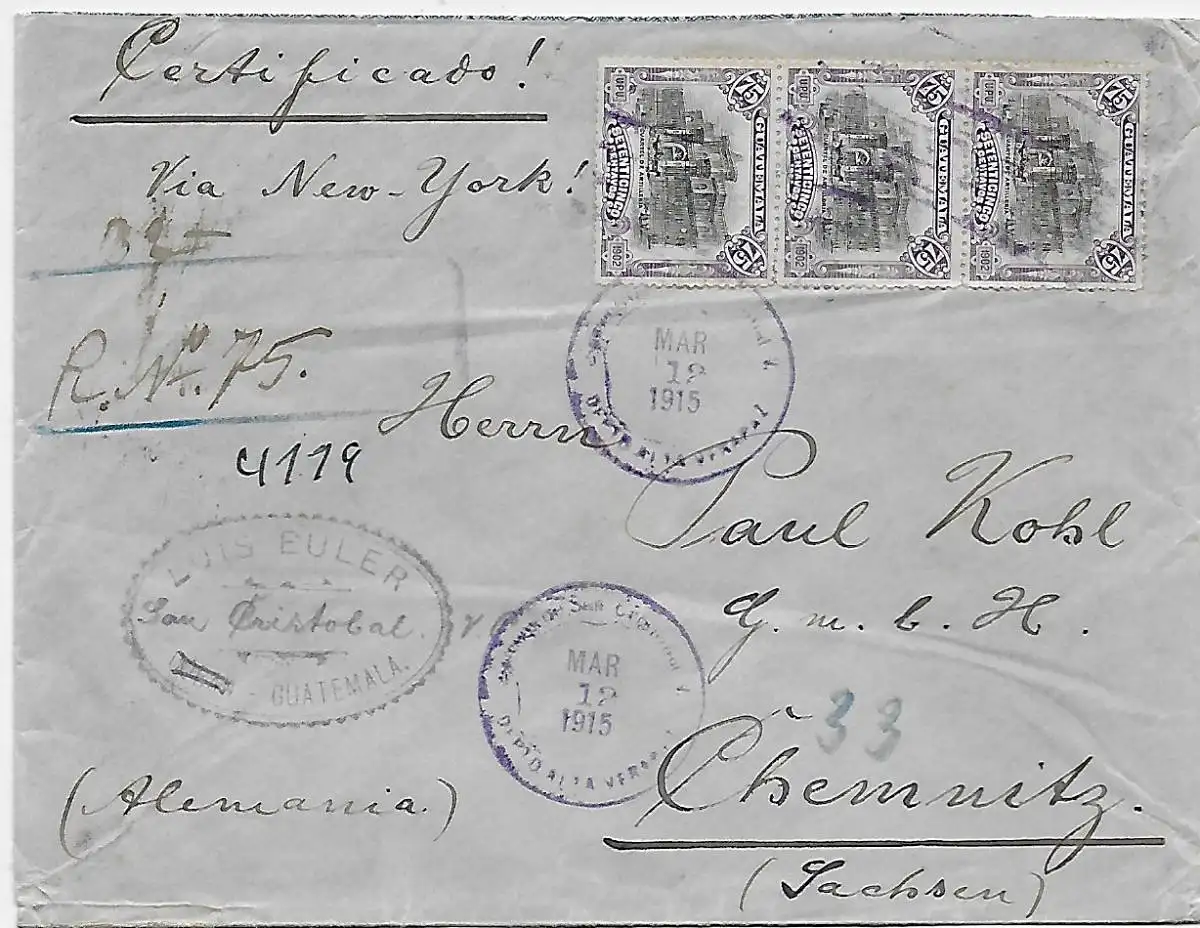 Certificado!
Via New-York!
UPU 75
GUATEMALA
SETENTICINCO
CENTAVOS
CUARTEL DE ARTILLERIA
1902 75
UPU 75
GUATEMALA
SETENTICINCO
CENTAVOS
CUARTEL DE ARTILLERIA
1902 75
UPU 75
GUATEMALA
SETENTICINCO
CENTAVOS
CUARTEL DE ARTILLERIA
1902 75
R. No. 75.
4119
MAR
12
1915
DEPTO ALTA VERAPAZ
Herrn
Paul Kohl
G. m. b. H.
LUIS EULER
San Cristobal.
GUATEMALA.
San Cristobal V
MAR
12
1915
DEPTO ALTA VERAPAZ
33
Chemnitz.
(Alemania.)
(Sachsen)